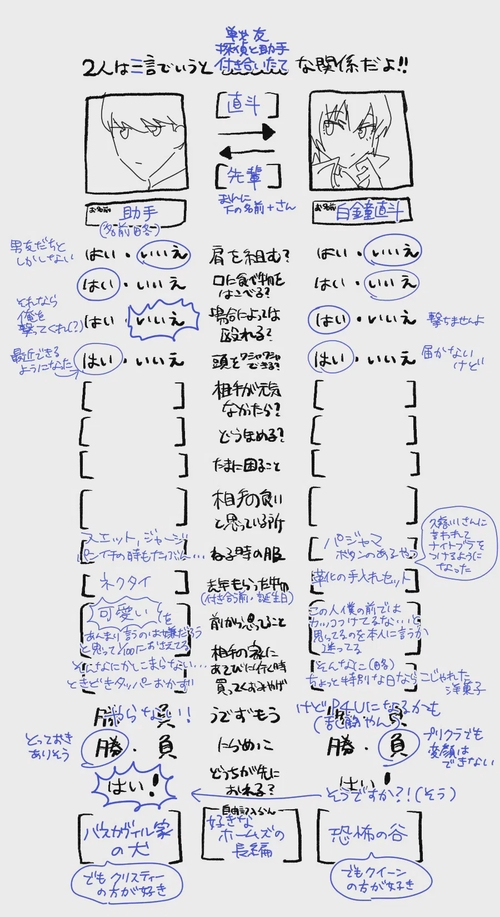 戦友
探偵と助手
付き合いたて
2人は三言でいうと な関係だよ!!
[直斗]
[先輩]
まれに
下の名前+さん
お名前 助手
(名前略)
お名前 白鐘直斗
男友だちと
しかしない
はい・いいえ 肩を組む? はい・いいえ
はい・いいえ 口に食べ物を
はこべる? はい・いいえ
それなら
俺を
撃ってくれ(?)
はい・いいえ 場合によっては
殴れる? はい・いいえ 撃ちませんよ
最近できる
ようになった
はい・いいえ 頭をワシャワシャ
できる? はい・いいえ 届かない
けど
相手が元気
なかったら?
どうなぐめる?
たまに困ること
相手の良い
と思っている所
スエット,ジャージ
パンイチの時もたぶん…
ねる時の服
パジャマ
ボタンのあるやつ
久慈川さんに
言われて
ナイトブラを
つけるように
なった
ネクタイ
去年もらった物
(付き合う前・誕生日)
革化の手入れセット
可愛い を
あんまり言うのもお嫌だろう
と思って1/100におさえてる
前から思ってること
この人僕の前では
カッコつけてるな…と
思ってるのを本人に言うか
迷ってる
そんなにかしこまらない…
ときどきタッパーおかず
相手の家に
あそびに行く時
買ってくおみやげ
そんなに(略)
ちょっと特別な日なら こじゃれた
洋菓子
勝・負
うでずもう
けどP4Uになるかも
勝・負
とっておき
ありそう
勝・負 にらめっこ 勝・負
プリクラでも
変顔は
できない
はい! どちらが先に
おれる? はい!
そうですか?!(そう)
自由記入らん
好きな
ホームズの
長編
バスカヴィル家
の犬
恐怖の谷
でもクリスティー
の方が好き
でもクイーン
の方が好き